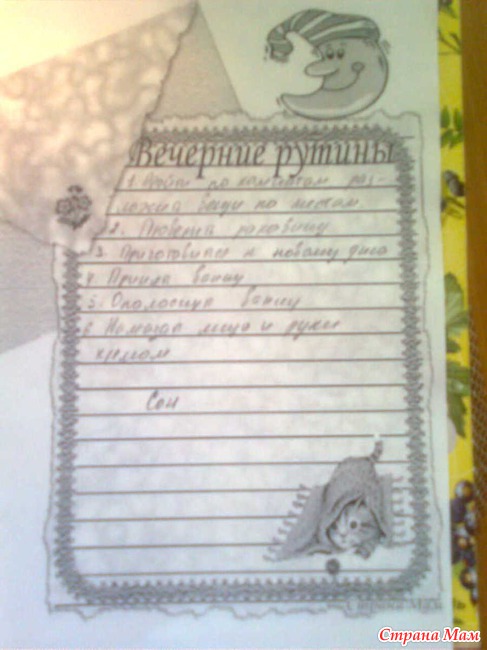 Вечерние рутины
1. Пройти по комнатам раз-
ложив вещи по местам.
2. раковину
3. Приготовилась к новому дню
4. Приняла ванну
5. Ополоснула ванну
6 Намазала лицо и руки
кремом
Сон
Страна Мам
Страна Мам